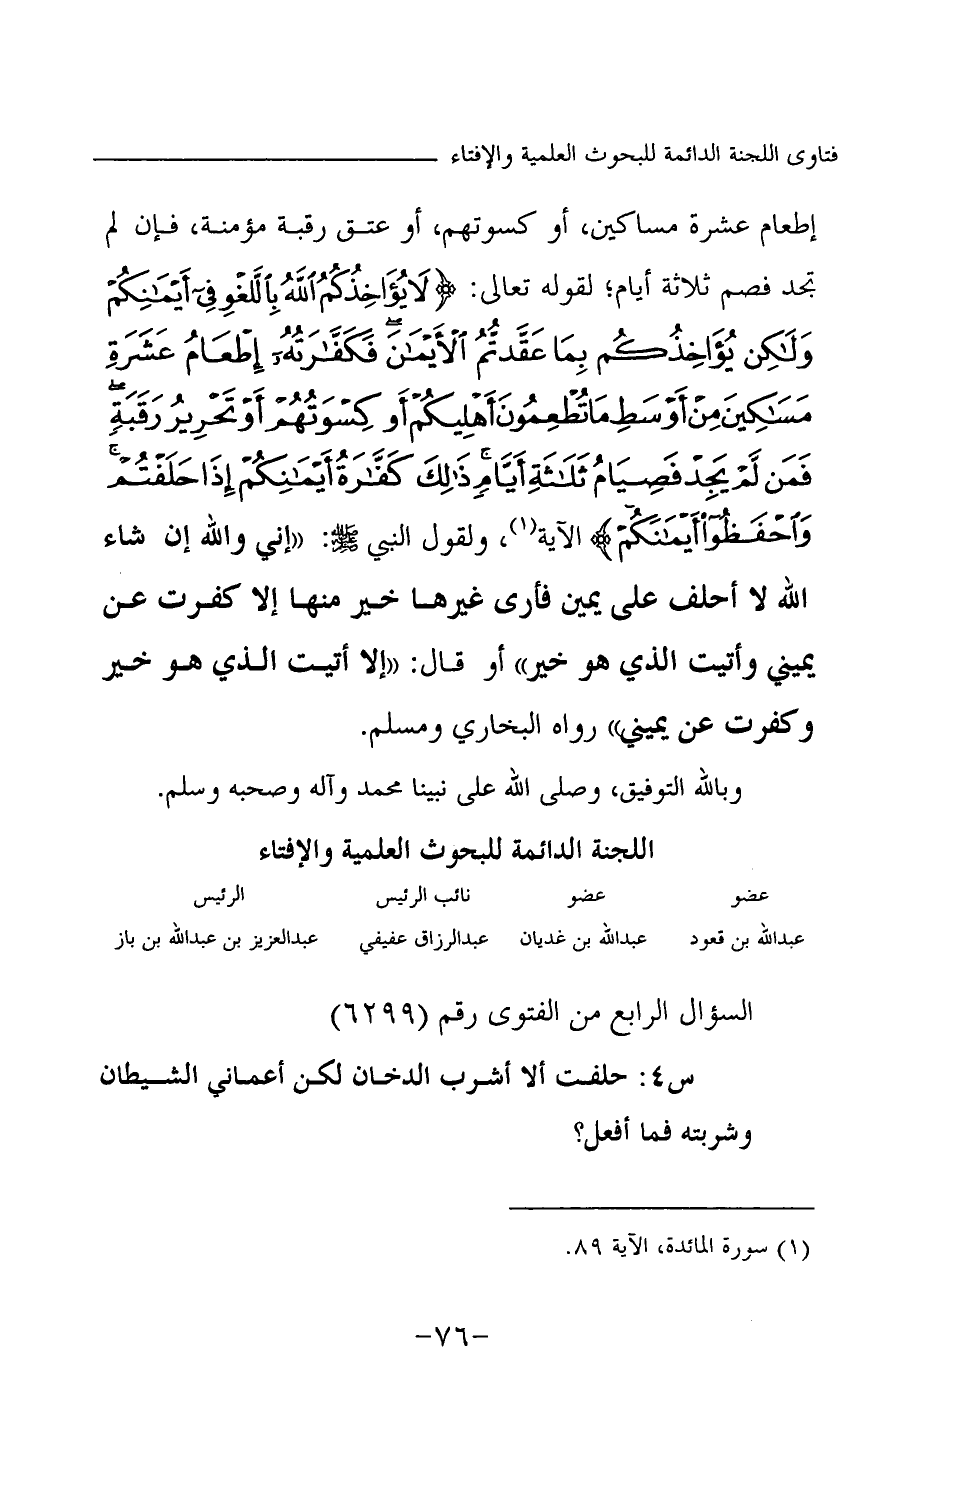 فتاوى اللجنة الدائمة للبحوث العلمية والإفتاء
إطعام عشرة مساكين، أو كسوتهم، أو عتق رقبة مؤمنة، فإن لم
تجد فصم ثلاثة أيام؛ لقوله تعالى: ﴿لَا يُؤَاخِذُكُمُ ٱللَّهُ بِٱللَّغْوِ فِىٓ أَيْمَٰنِكُمْ
وَلَٰكِن يُؤَاخِذُكُم بِمَا عَقَّدتُّمُ ٱلْأَيْمَٰنَ ۖ فَكَفَّٰرَتُهُۥٓ إِطْعَامُ عَشَرَةِ
مَسَٰكِينَ مِنْ أَوْسَطِ مَا تُطْعِمُونَ أَهْلِيكُمْ أَوْ كِسْوَتُهُمْ أَوْ تَحْرِيرُ رَقَبَةٍ ۖ
فَمَن لَّمْ يَجِدْ فَصِيَامُ ثَلَٰثَةِ أَيَّامٍ ۚ ذَٰلِكَ كَفَّٰرَةُ أَيْمَٰنِكُمْ إِذَا حَلَفْتُمْ ۚ
وَٱحْفَظُوٓا۟ أَيْمَٰنَكُمْ﴾ الآية(١)، ولقول النبي ﷺ: «إني والله إن شاء
الله لا أحلف على يمين فأرى غيرها خير منها إلا كفرت عن
يميني وأتيت الذي هو خير» أو قال: «إلا أتيت الذي هو خير
وكفرت عن يميني» رواه البخاري ومسلم.
وبالله التوفيق، وصلى الله على نبينا محمد وآله وصحبه وسلم.
اللجنة الدائمة للبحوث العلمية والإفتاء
عضو عضو نائب الرئيس الرئيس
عبدالله بن قعود عبدالله بن غديان عبدالرزاق عفيفي عبدالعزيز بن عبدالله بن باز
السؤال الرابع من الفتوى رقم (٦٢٩٩)
س٤: حلفت ألا أشرب الدخان لكن أعماني الشيطان
وشربته فما أفعل؟
(١) سورة المائدة، الآية ٨٩.
-٧٦-